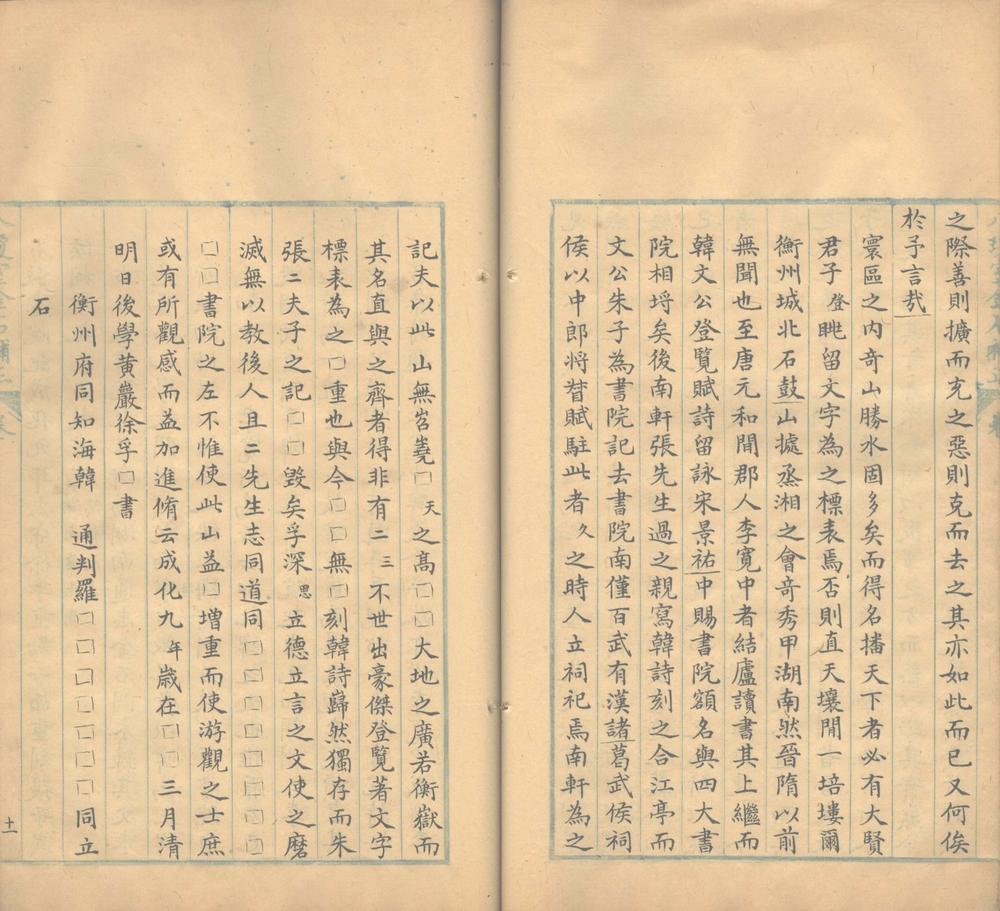 之際善則擴而充之惡則克而去之其亦如此而已又何俟
於予言哉
寰區之內奇山勝水固多矣而得名播天下者必有大賢
君子登眺留文字為之標表焉否則直天壤間一培塿爾
衡州城北石鼓山據烝湘之會奇秀甲湖南然晉隋以前
無聞也至唐元和間郡人李寬中者結廬讀書其上繼而
韓文公登覽賦詩留詠宋景祐中賜書院額名與四大書
院相埒矣後南軒張先生過之親寫韓詩刻之合江亭而
文公朱子為書院記去書院南僅百武有漢諸葛武侯祠
侯以中郎將督賦駐此者久之時人立祠祀焉南軒為之
記夫以此山無岧嶤□天之高□□大地之廣若衡嶽而
其名直與之齊者得非有二三不世出豪傑登覽著文字
標表為之□重也與今□□無□刻韓詩巋然獨存而朱
張二夫子之記□□毀矣孚深思立德立言之文使之磨
滅無以教後人且二先生志同道同□□□□□□□□
□□書院之左不惟使此山益□增重而使游觀之士庶
或有所觀感而益加進脩云成化九年歲在□□三月清
明日後學黃巖徐孚□書
衡州府同知海韓 通判羅□□□□□□□同立
石
十一